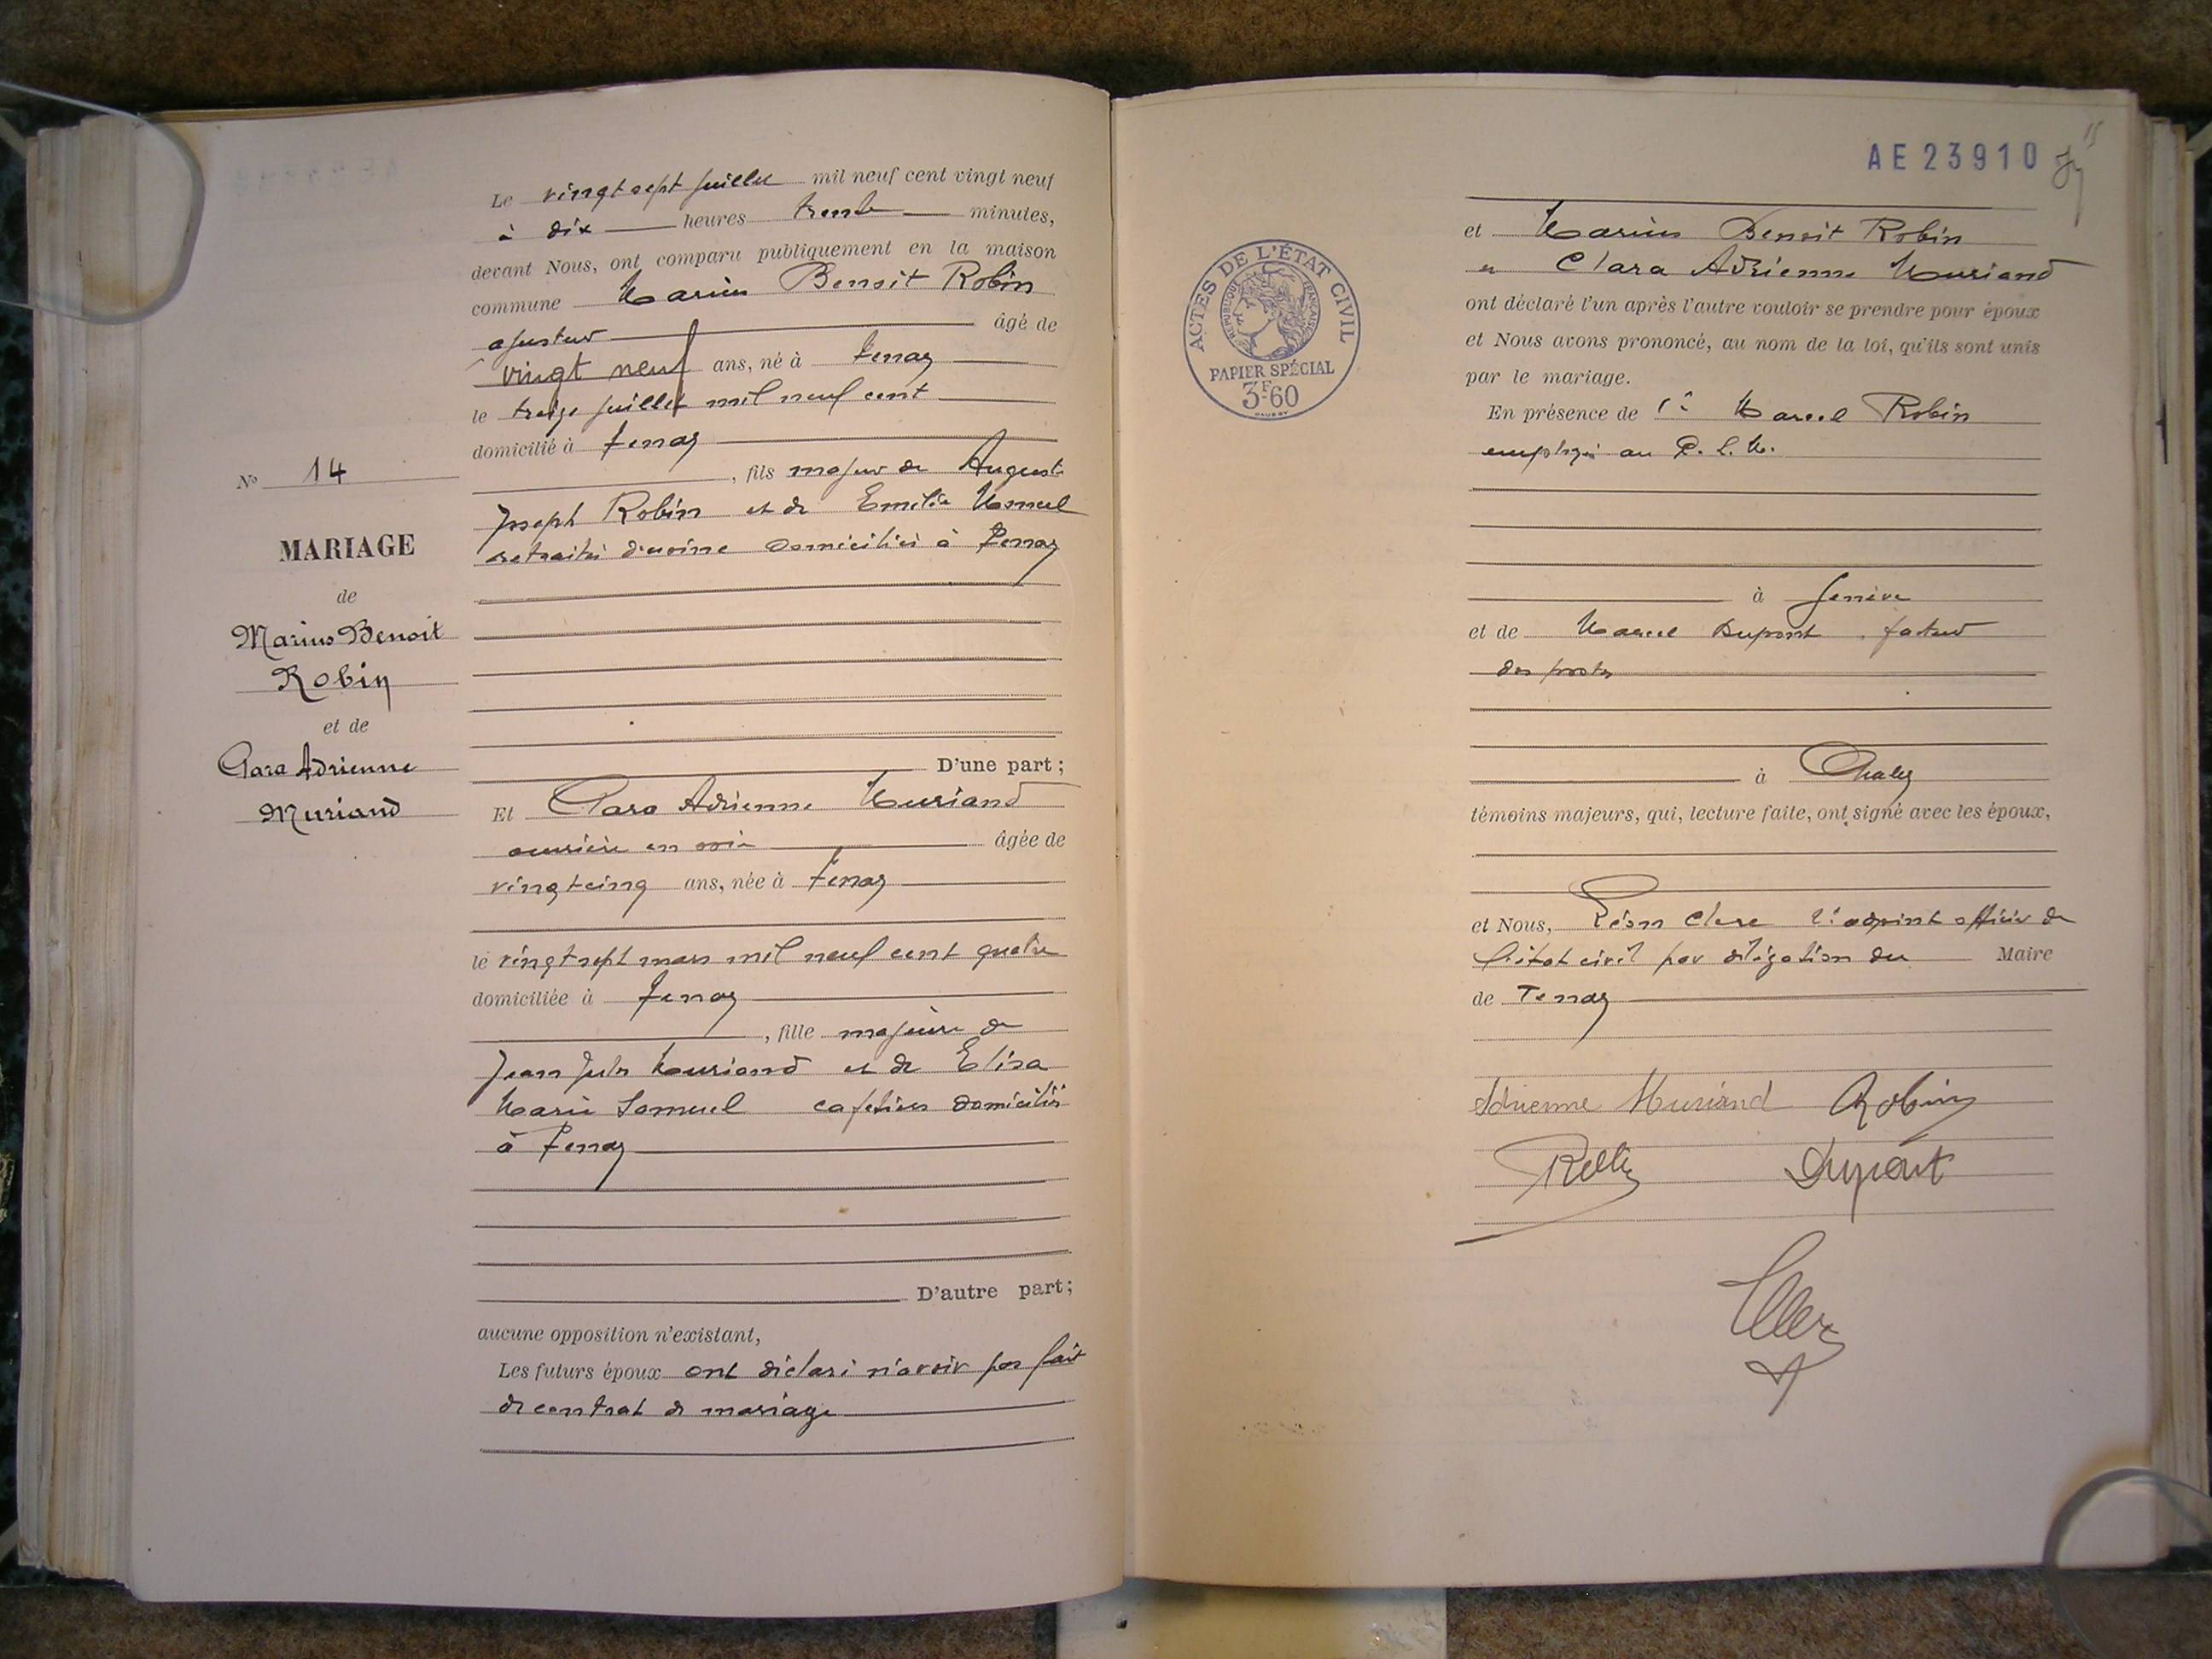 Le vingt sept juillet mil neuf cent vingt neuf
à dix heures trente minutes,
devant Nous, ont comparu publiquement en la maison
commune Marius Benoit Robin
ajusteur âgé de
vingt neuf ans, né à Tenay
le treize juillet mil neuf cent
domicilié à Tenay
, fils majeur de Auguste
Joseph Robin et de Emilie
retraités d'usine domiciliés à Tenay
N° 14
MARIAGE
de
Marius Benoit
Robin
et de
Clara Adrienne
Muriand
D'une part ;
Et Clara Adrienne Muriand
ouvrière en soie âgée de
vingt cinq ans, née à Tenay
le vingt sept mars mil neuf cent quatre
domiciliée à Tenay
, fille majeure de
Jean Jules Muriand et de Elisa
Marie Samuel cafetiers domiciliés
à Tenay
D'autre part ;
aucune opposition n'existant,
Les futurs époux ont déclaré n'avoir pas fait
de contrat de mariage
AE23910
15
ACTES DE L'ÉTAT CIVIL
RÉPUBLIQUE FRANÇAISE
PAPIER SPÉCIAL
3F60
et Marius Benoit Robin
et Clara Adrienne Muriand
ont déclaré l'un après l'autre vouloir se prendre pour époux
et Nous avons prononcé, au nom de la loi, qu'ils sont unis
par le mariage.
En présence de Marcel Robin
employé au P. L. M.
à Genève
et de Marcel Dupont facteur
des postes
à Chaley
témoins majeurs, qui, lecture faite, ont signé avec les époux,
et Nous, Léon Clerc adjoint officier de
l'état civil par délégation du Maire
de Tenay
Adrienne Muriand Robin
Robin Dupont